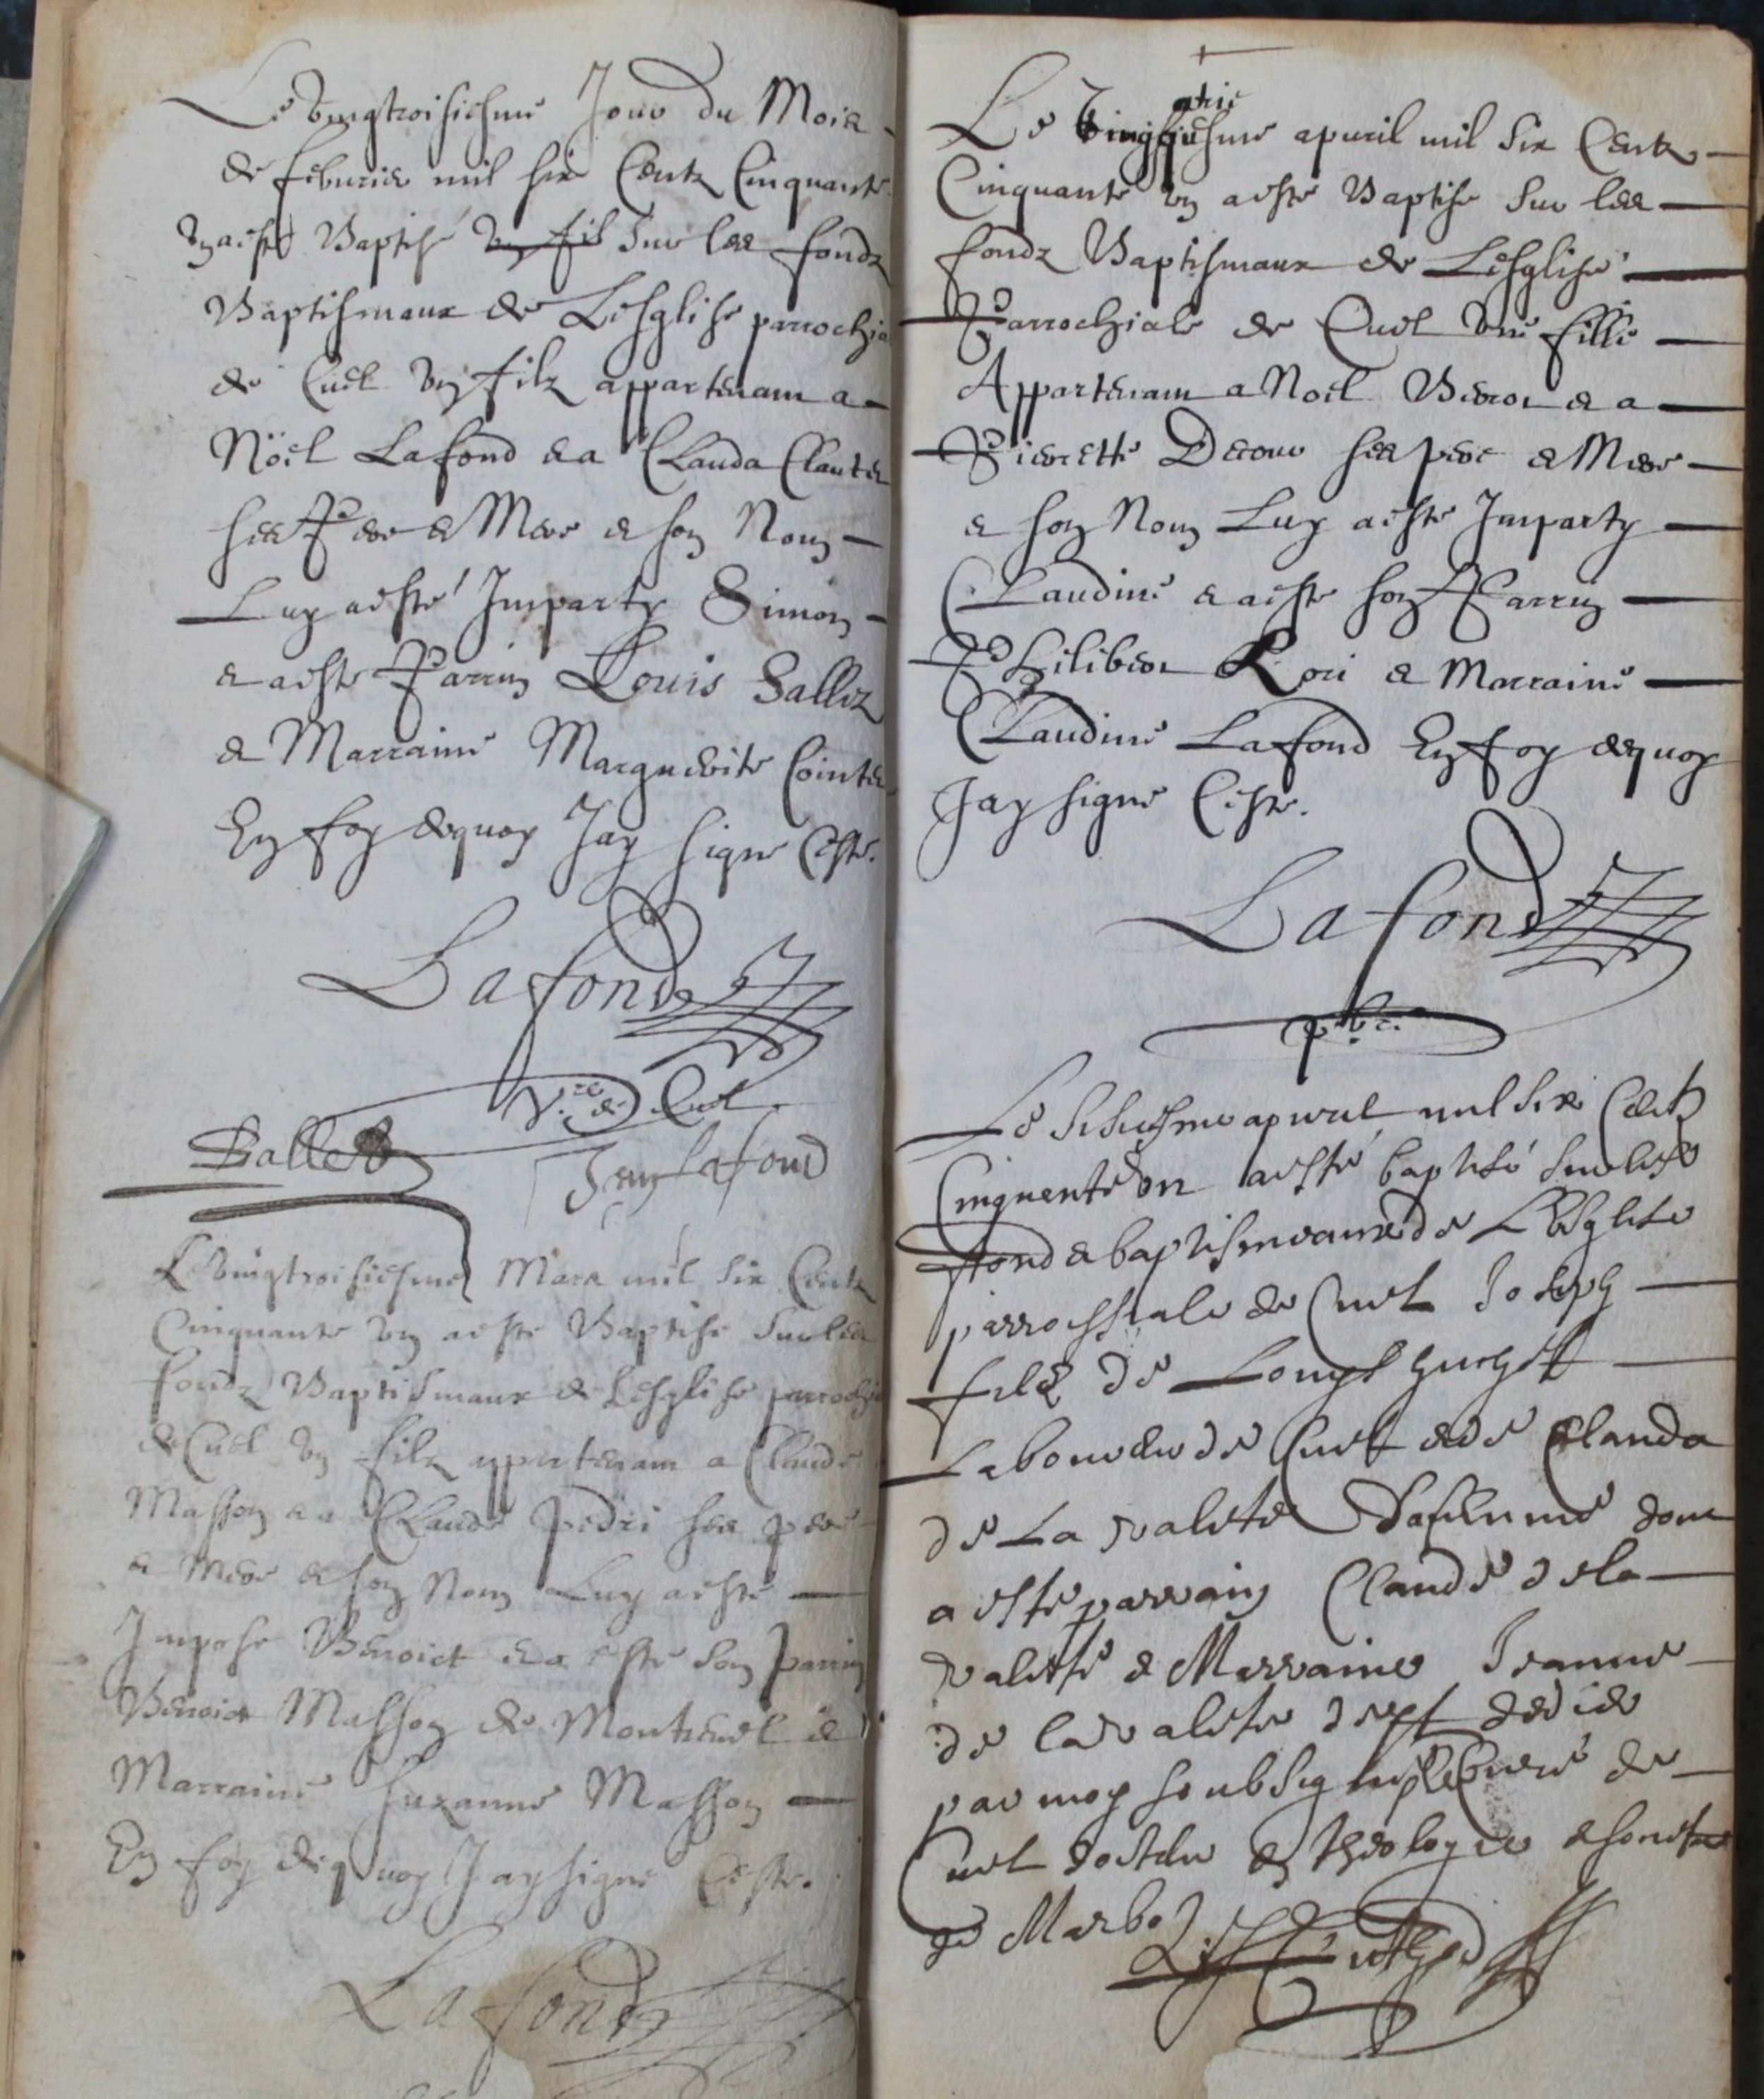 Le vingtroisiesme Jour du Mois
de febvrier mil six Centz Cinquante
Un a esté Baptisé un fil sur les fondz
Baptismaux de Lesglise parrochia
de Cuel Un filz appartenam a
Nöel Lafond & a Clauda Clautel
ses Pere & Mere & son Nom
Luy a esté Imparty Simon
& a este Parrin Louis Sallez
& Marraine Marguerite Cointe
En foy dequoy Jay signe Ceste.
Lafond
V.re de Cuel
Sallet
Jean Lafond
Le vingtroisiesme Mars mil six Centz
Cinquante Un a este Baptise sur les
fondz Baptismaux de Lesglise parrochi
de Cuel Un filz appartenam a Claude
Masson & a Claude Pedri ses pere
& Mere & son Nom Luy a esté
Impose Benoict & a esté son parrin
Benoict Masson de Montrevel &
Marraine Suzanne Masson
En foy dequoy Jay signe Ceste.
Lafond
Le Vingt atrie iesme apuril mil six Centz
Cinquante Un a este Baptise sur les
fondz Baptismaux de Lesglise
Parrochiale de Cuel Une fille
Appartenam a Noel Beror & a
Pierrette Decour ses pere & Mere
& son Nom Luy a este Imparty
Claudine & a este son Parrin
Philibert Rori & Marraine
Claudine Lafond En foy dequoy
Jay signe Ceste.
Lafond
pbre.
Le sisiesme apvril mil six Centz
Cinquente Un a esté baptisé sur les
fond & baptismeaux de LEsglise
parrochiale de Cuel Joseph
filz de Louys
Laboureur de Cuel & de Clauda
de La valete Sa femme dont
a esté parrain Claude de la
valette & Marraine Jeanne
de la valete
par moy soubsigné Curé de
Cuel docteur en theologie
de Marbo